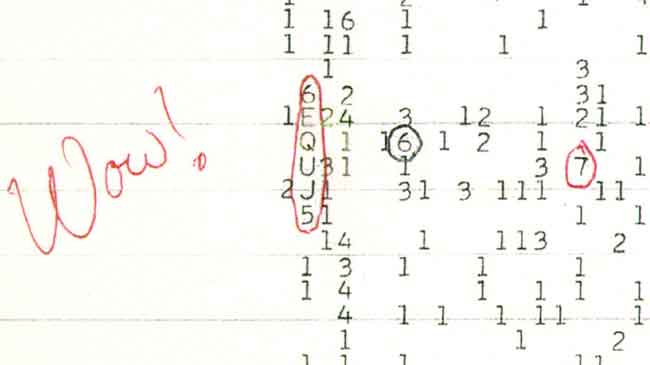 1 16 1 1
1 11 1 1 1
1 3
6 2 31
1E24 3 12 1 21 1
Wow!
Q 1 16 1 2 1 1
U31 1 3 7 1
2J1 31 3 111 11
51 1 1
14 1 113 2
1 3 1 1 1
1 4 1 1 1 1
4 1 1 1 11 1
1 1 2
1 1 1 11